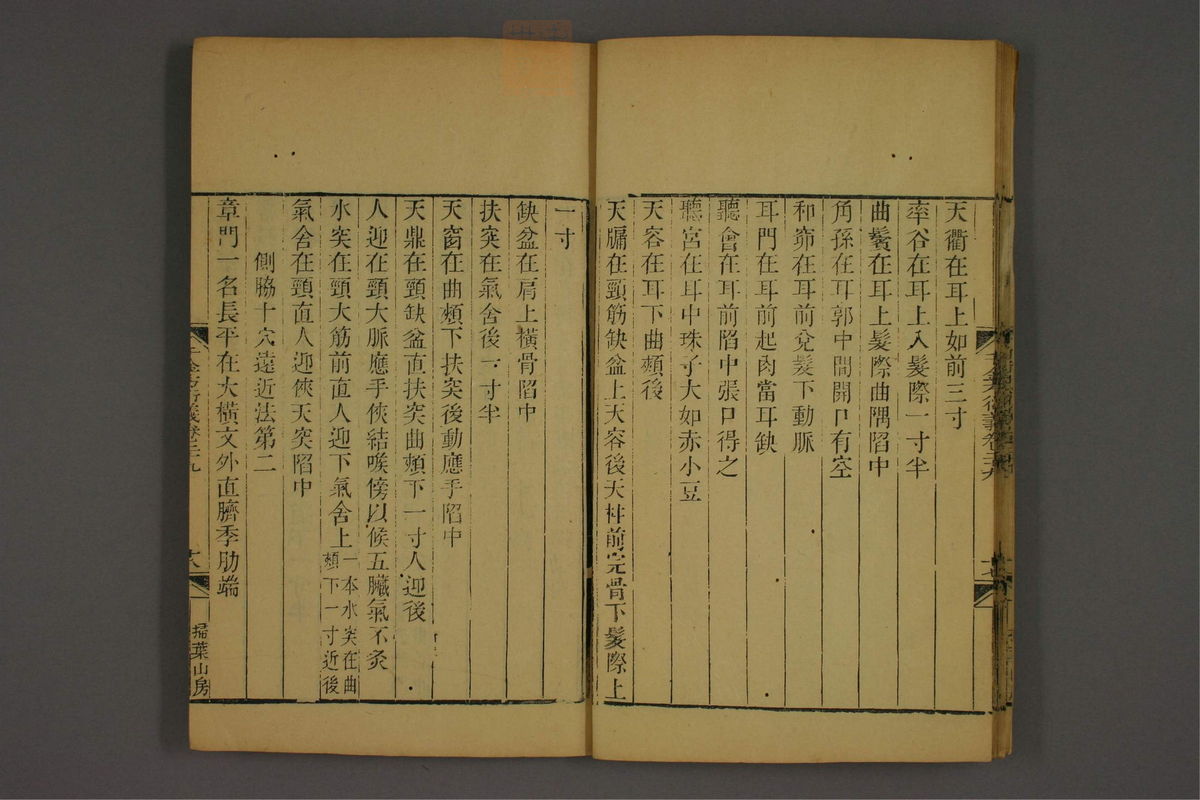 天衢在耳上如前三寸
率谷在耳上入髮際一寸半
曲鬢在耳上髮際曲隅陷中
角孫在耳郭中間開口有空
和窌在耳前兌髮下動脈
耳門在耳前起肉當耳缺
聽會在耳前陷中張口得之
聽宮在耳中珠子大如赤小豆
天容在耳下曲頰後
天牖在頸筋缺盆上天容後天柱前完骨下髮際上
一寸
缺盆在肩上橫骨陷中
扶突在氣舍後一寸半
天窗在曲頰下扶突後動應手陷中
天鼎在頸缺盆直扶突曲頰下一寸人迎後
人迎在頸大脈應手俠結喉傍以候五臟氣不灸
水突在頸大筋前直人迎下氣舍上一本水突在曲頰下一寸近後
氣舍在頸直人迎俠天突陷中
側脇十穴遠近法第二
章門一名長平在大橫文外直臍季肋端
千金方衍義卷二十九
十八
掃葉山房